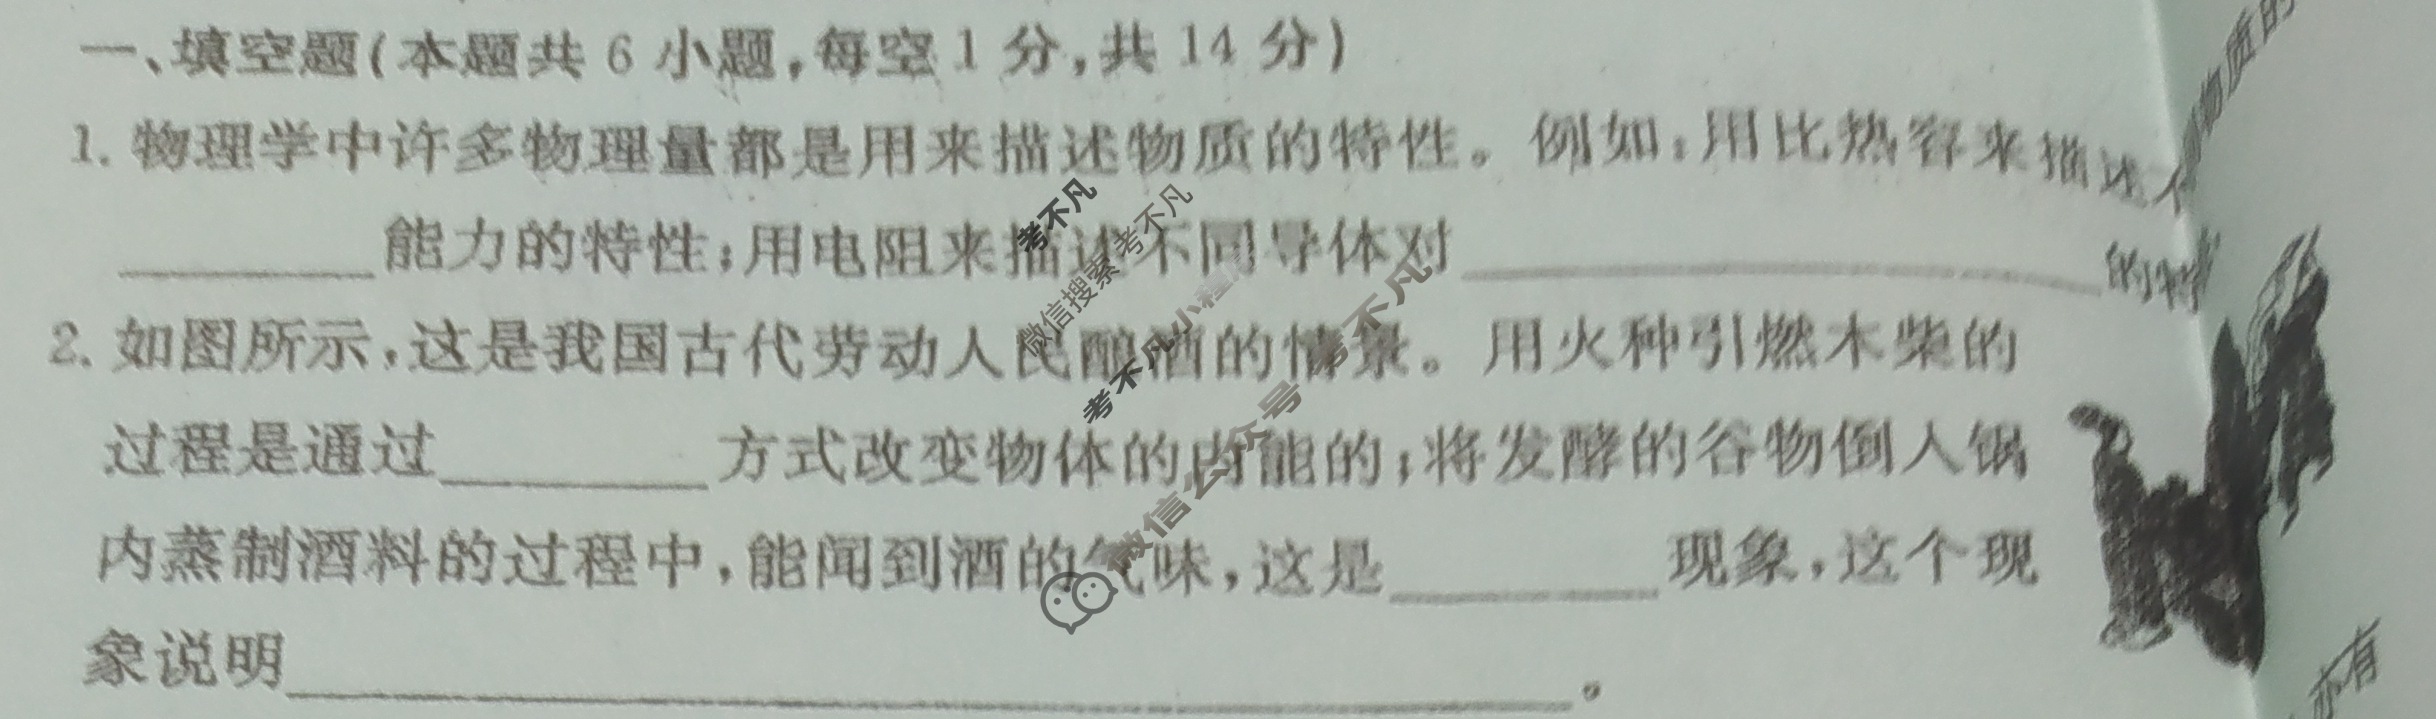 一、填空题(本题共 6 小题,每空 1 分,共 14 分)
1. 物理学中许多物理量都是用来描述物质的特性。例如:用比热容来描述不同物质的
能力的特性;用电阻来描述不同导体对 的特
2. 如图所示,这是我国古代劳动人民酿酒的情景。用火种引燃木柴的
过程是通过 方式改变物体的内能的;将发酵的谷物倒入锅
内蒸制酒料的过程中,能闻到酒的气味,这是 现象,这个现
象说明 。
考不凡
微信搜索 考不凡
考不凡小程序
微信公众号 考不凡